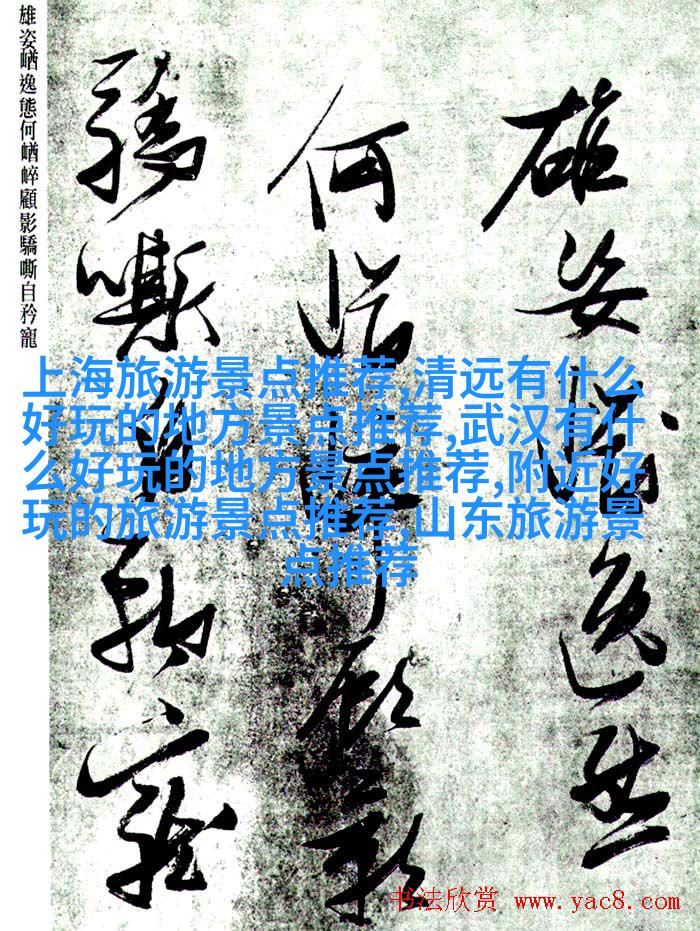 雄姿崷逸態
何崷崒顧影
驕嘶自矜寵
雄姿崷逸態何崷崒顧影驕嘶自矜寵
上海旅游景点推荐,清远有什么
好玩的地方景点推荐,武汉有什
么好玩的地方景点推荐,附近好
玩的旅游景点推荐,山东旅游景
点推荐
书法欣赏 www.yac8.com